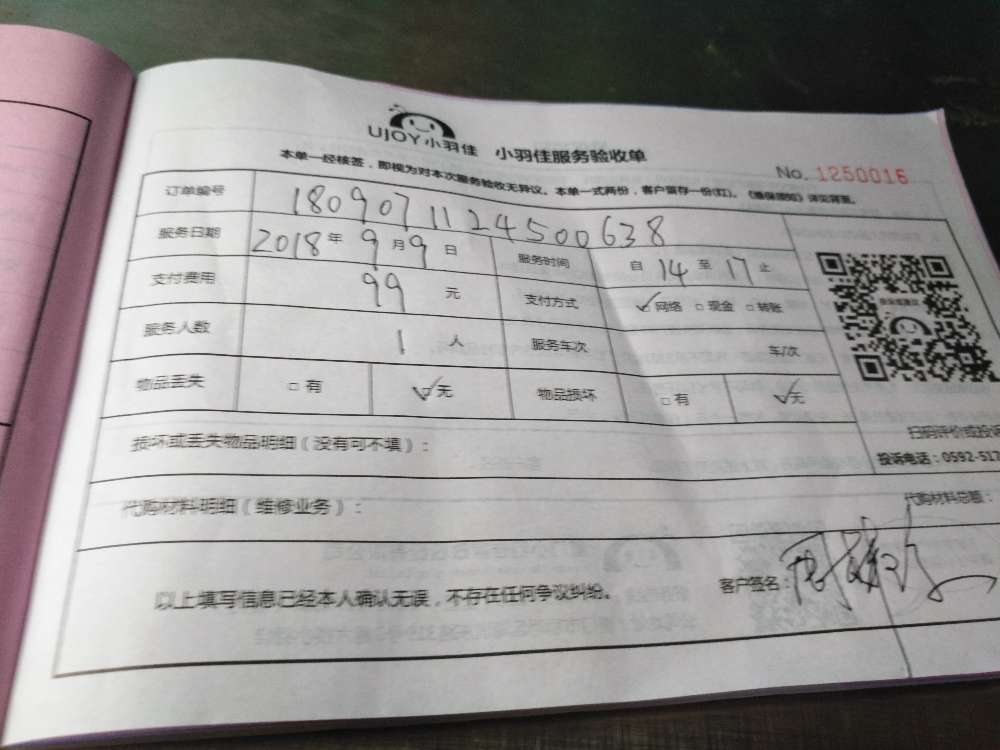 UJOY小羽佳 小羽佳服务验收单
No. 1250016
本单一经核签，即视为对本次服务验收无异议。本单一式两份，客户留存一份(红)。《维保须知》详见背面。
订单编号 1809071124500638
服务日期 2018年9月9日 服务时间 自14至17止
支付费用 99元 支付方式 ✓网络 □现金 □转账
服务人数 1人 服务车次 车/次
物品丢失 □有 ✓无 物品损坏 □有 ✓无
扫码评价或投诉
投诉电话：0592-517
损坏或丢失物品明细（没有可不填）：
代购材料明细（维修业务）： 代购材料总额：
以上填写信息已经本人确认无误，不存在任何争议纠纷。 客户签名：